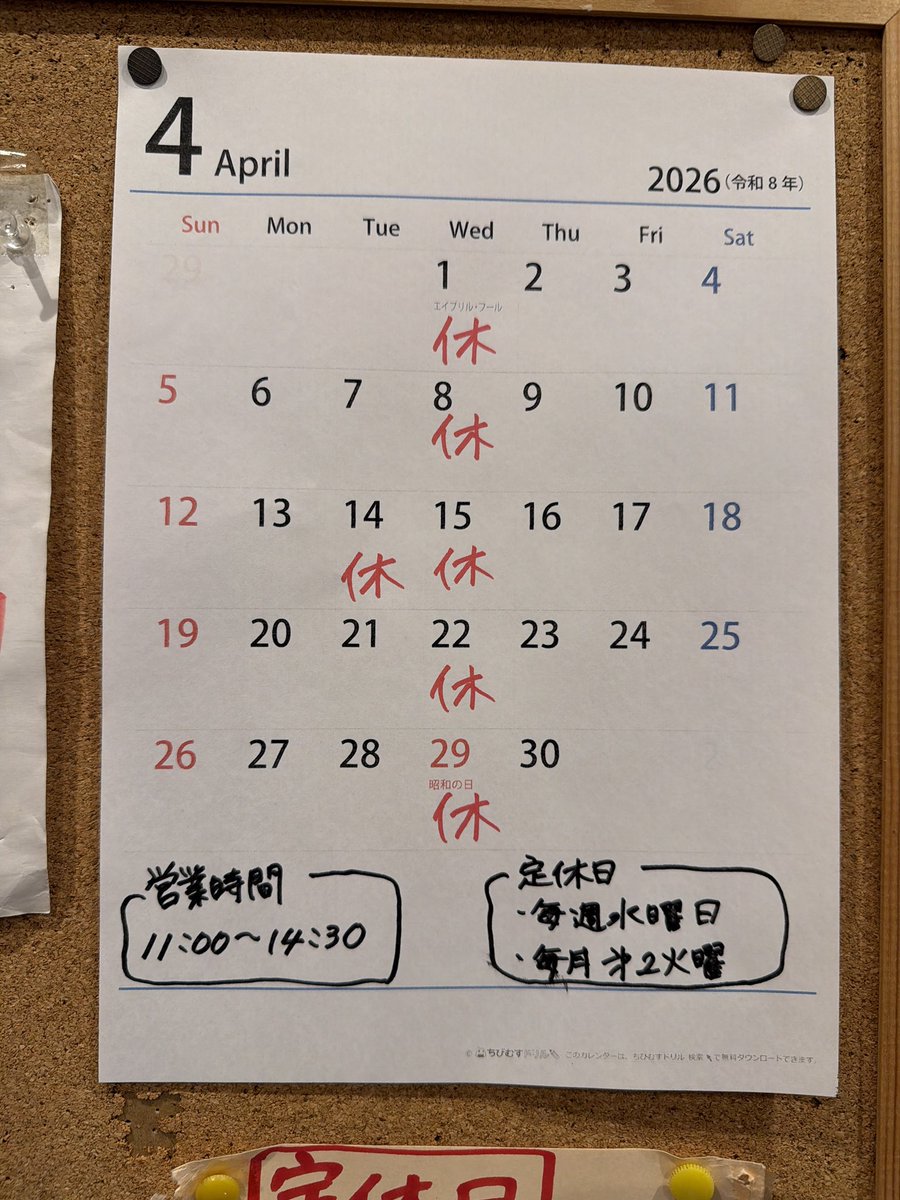 4 April
2026 (令和8年)
Sun Mon Tue Wed Thu Fri Sat
29 1 2 3 4
エイプリル・フール
休
5 6 7 8 9 10 11
休
12 13 14 15 16 17 18
休 休
19 20 21 22 23 24 25
休
26 27 28 29 30
昭和の日
休
営業時間
11:00～14:30
定休日
・毎週水曜日
・毎月才2火曜
© ちびむすドリル このカレンダーは、ちびむすドリル 検索 で無料ダウンロードできます。
定休日